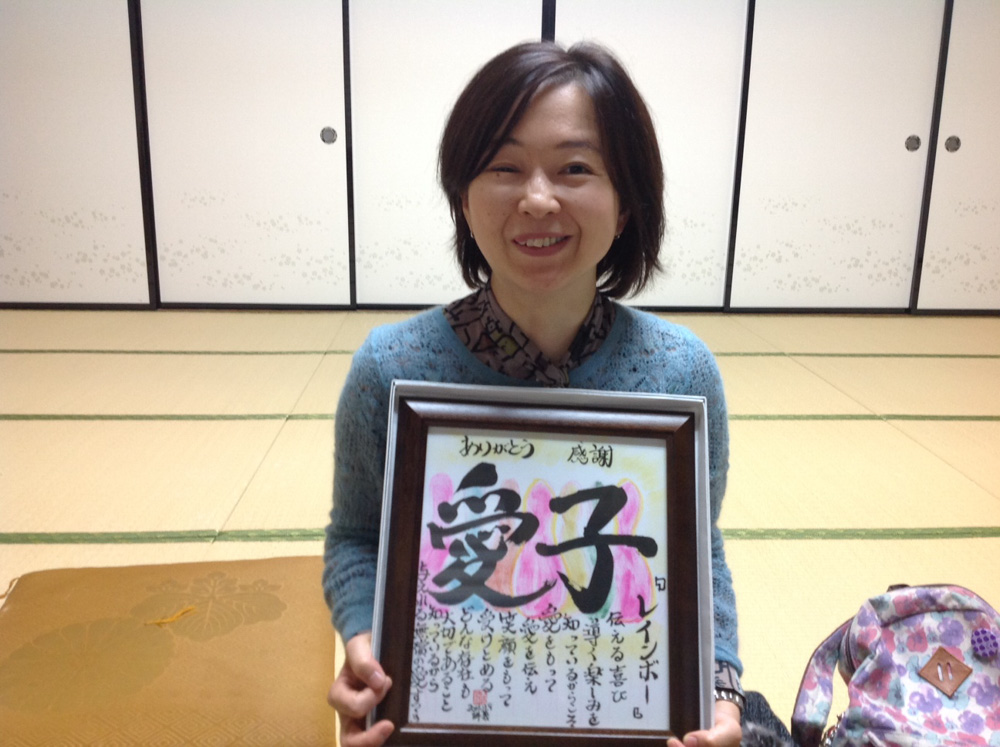 ありがとう 感謝
愛子
『レインボー』
伝える喜び
導く楽しみを
知っているからこそ
愛をもって
愛を伝え
笑顔をもって
受けとめる
どんな存在も
大切であること
知っているから